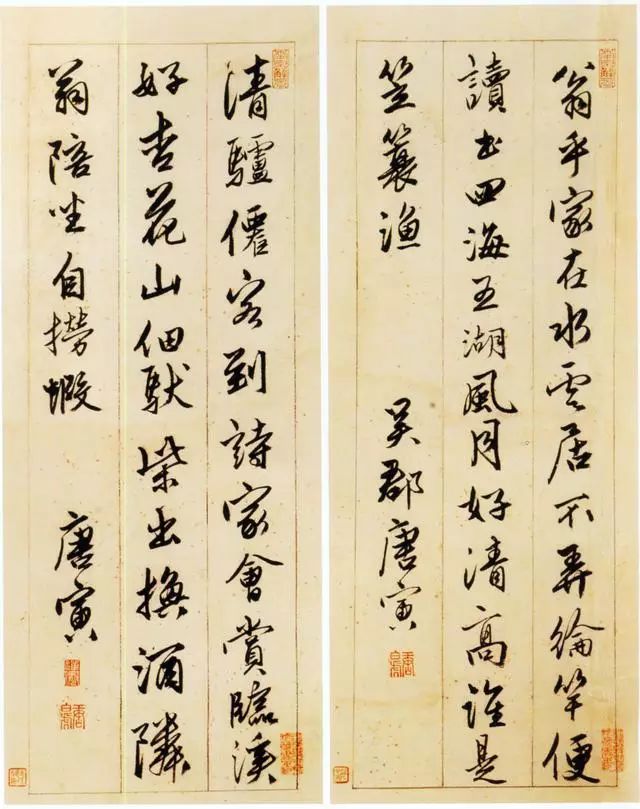 翁乎家在水雲居不弄綸竿便
讀书四海五湖風月好清高誰是
笠簑漁
吳郡唐寅
清驢僊客到詩家會賞臨溪
好杏花山佃馱柴出換酒隣
翁陪坐自撈蝦
唐寅